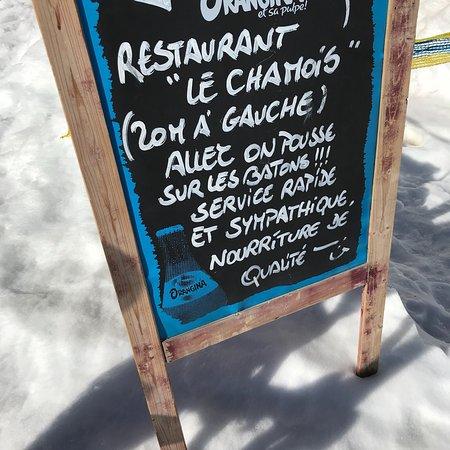 ORANGINA
et sa pulpe!
RESTAURANT
"LE CHAMOIS"
(20M A' GAUCHE)
ALLEZ ON POUSSE
SUR LES BATONS!!!
SERVICE RAPIDE
ET SYMPATHIQUE.
NOURRITURE DE
QUALITÉ
ORANGINA